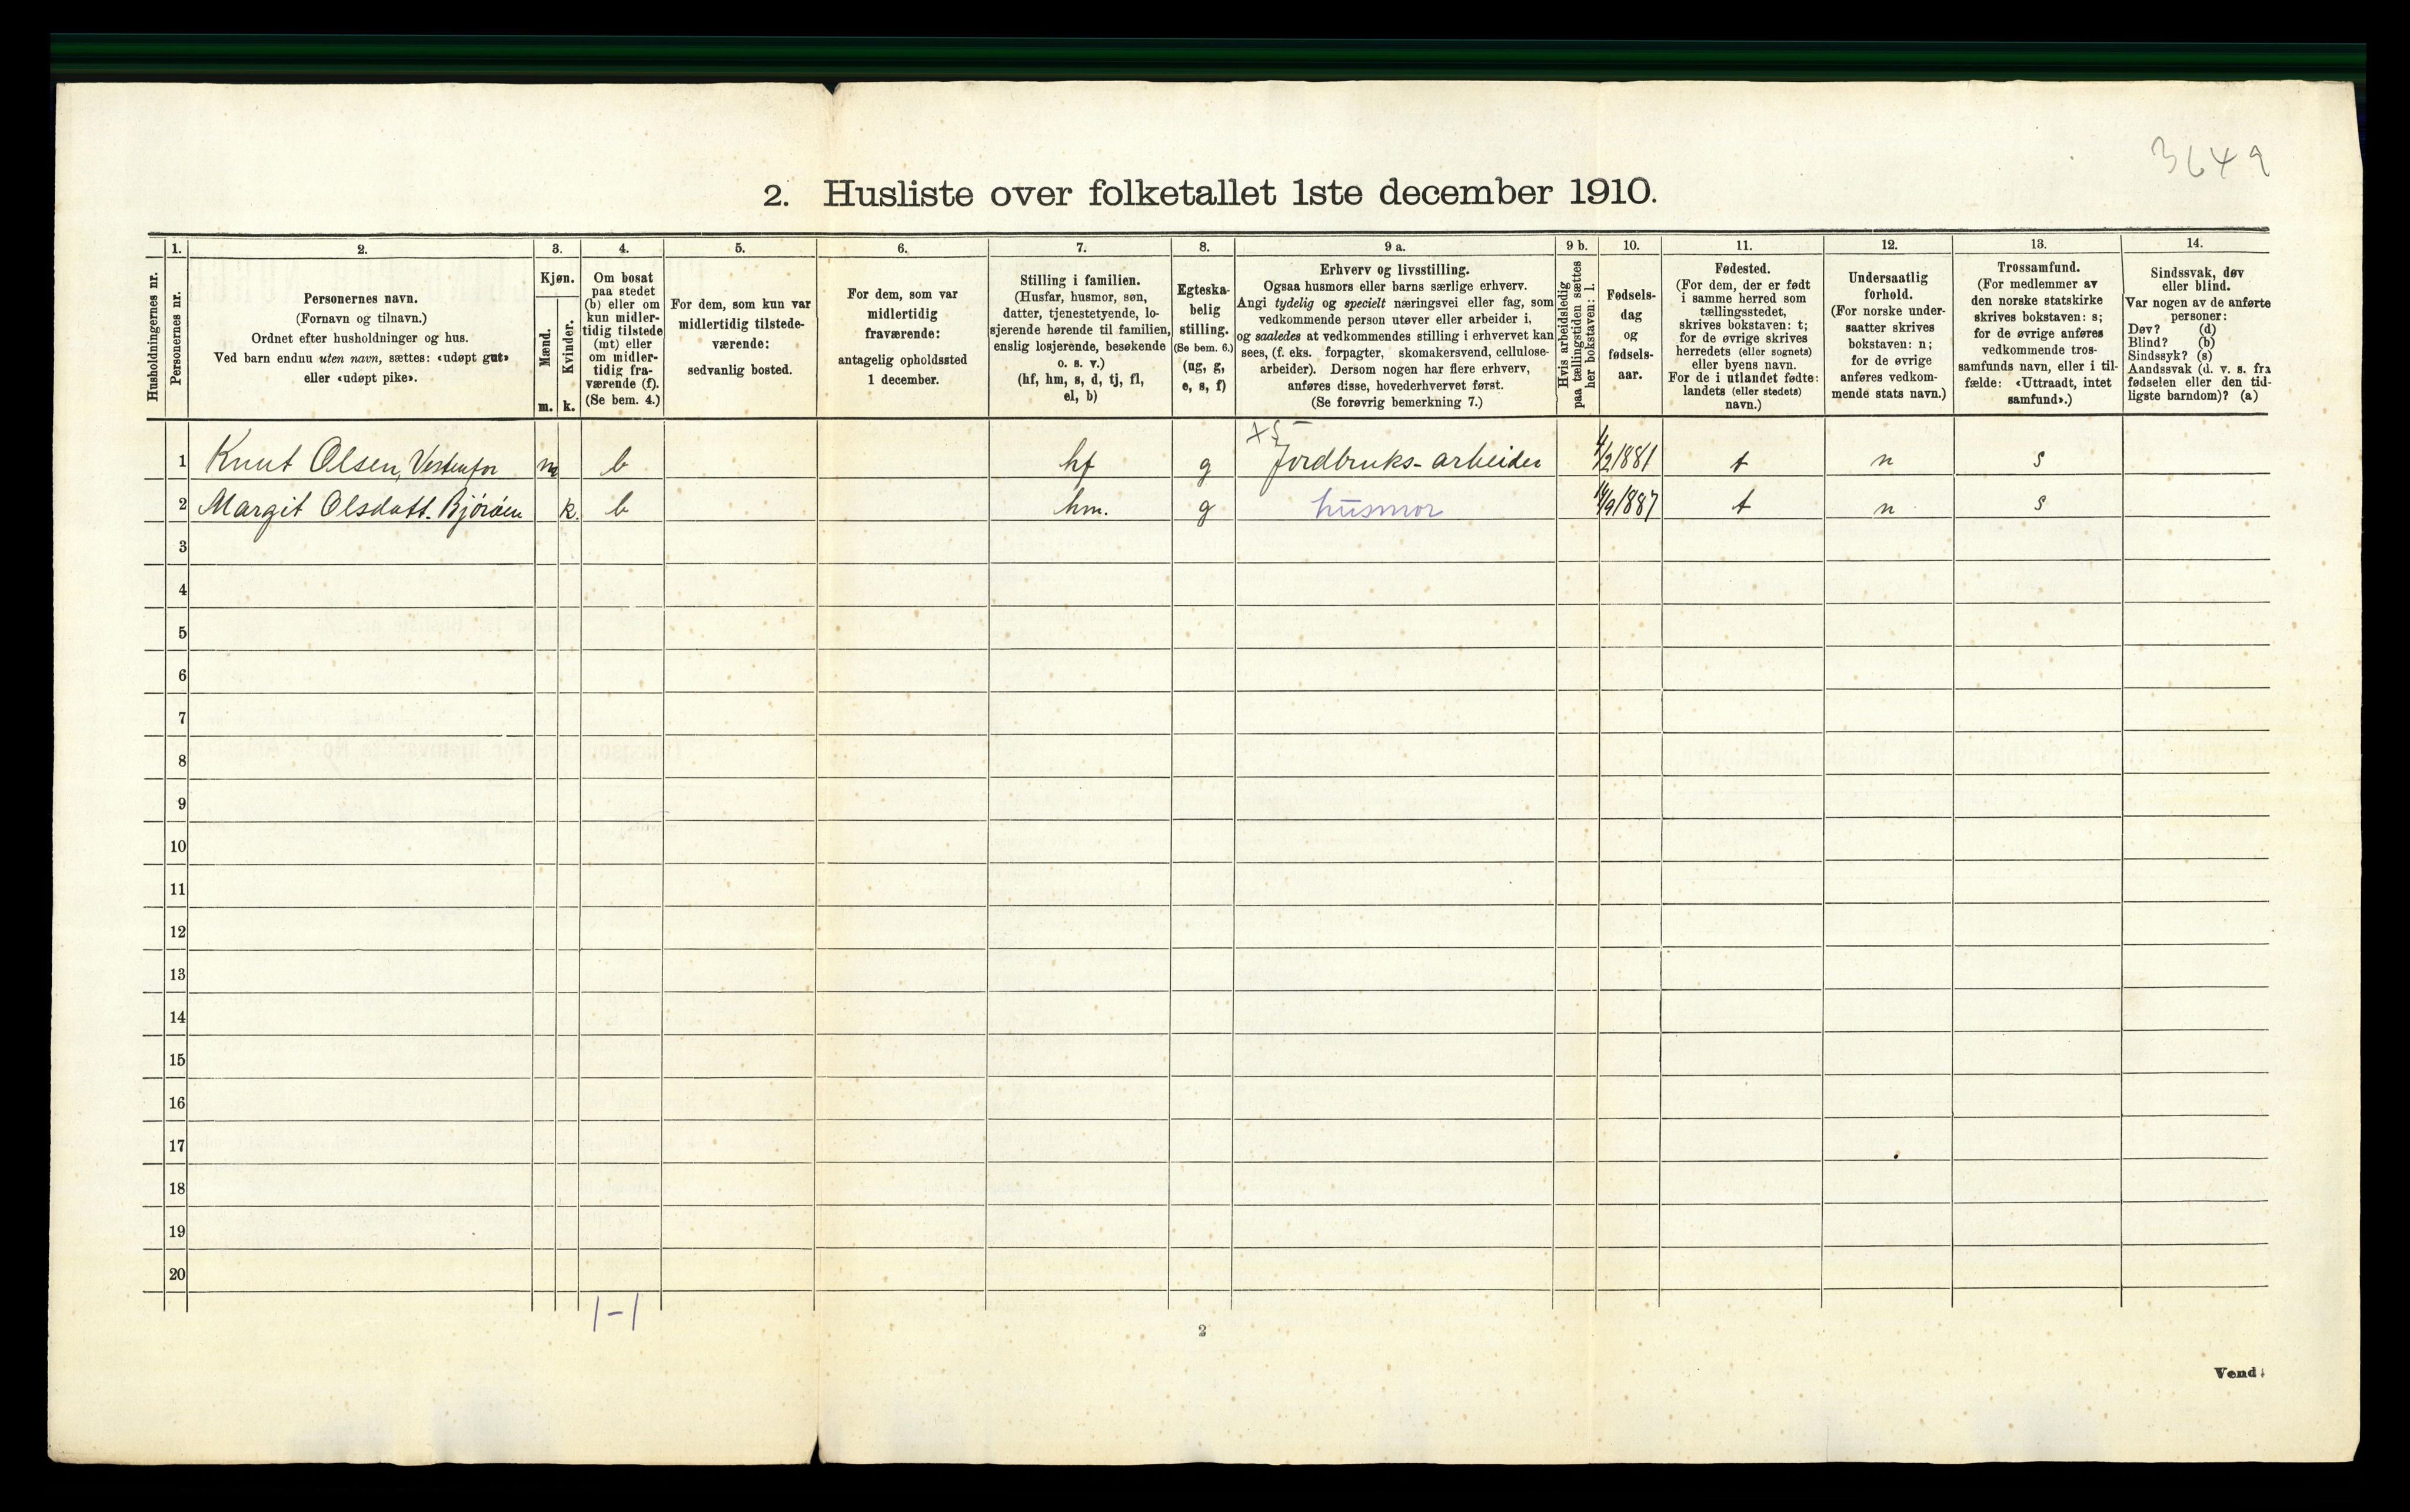 3649
2. Husliste over folketallet 1ste december 1910.
Husholdningernes nr.
1.
Personernes nr.
2.
Personernes navn.
(Fornavn og tilnavn.)
Ordnet efter husholdninger og hus.
Ved barn endnu uten navn, sættes: «udøpt gut»
eller «udøpt pike».
3.
Kjøn.
Mænd.
m.
Kvinder.
k.
4.
Om bosat
paa stedet
(b) eller om
kun midler-
tidig tilstede
(mt) eller
om midler-
tidig fra-
værende (f).
(Se bem. 4.)
5.
For dem, som kun var
midlertidig tilstede-
værende:
sedvanlig bosted.
6.
For dem, som var
midlertidig
fraværende:
antagelig opholdssted
1 december.
7.
Stilling i familien.
(Husfar, husmor, søn,
datter, tjenestetyende, lo-
sjerende hørende til familien,
enslig losjerende, besøkende
o. s. v.)
(hf, hm, s, d, tj, fl,
el, b)
8.
Egteska-
belig
stilling.
(Se bem. 6.)
(ug, g,
e, s, f)
9 a.
Erhverv og livsstilling.
Ogsaa husmors eller barns særlige erhverv.
Angi tydelig og specielt næringsvei eller fag, som
vedkommende person utøver eller arbeider i,
og saaledes at vedkommendes stilling i erhvervet kan
sees, (f. eks. forpagter, skomakersvend, cellulose-
arbeider). Dersom nogen har flere erhverv,
anføres disse, hovederhvervet først.
(Se forøvrig bemerkning 7.)
9 b.
Hvis arbeidsledig
paa tællingstiden sættes
her bokstaven: l.
10.
Fødsels-
dag
og
fødsels-
aar.
11.
Fødested.
(For dem, der er født
i samme herred som
tællingsstedet,
skrives bokstaven: t;
for de øvrige skrives
herredets (eller sognets)
eller byens navn.
For de i utlandet fødte:
landets (eller stedets)
navn.)
12.
Undersaatlig
forhold.
(For norske under-
saatter skrives
bokstaven: n;
for de øvrige
anføres vedkom-
mende stats navn.)
13.
Trossamfund.
(For medlemmer av
den norske statskirke
skrives bokstaven: s;
for de øvrige anføres
vedkommende tros-
samfunds navn, eller i til-
fælde: «Uttraadt, intet
samfund».)
14.
Sindssvak, døv
eller blind.
Var nogen av de anførte
personer:
Døv? (d)
Blind? (b)
Sindssyk? (s)
Aandssvak (d. v. s. fra
fødselen eller den tid-
ligste barndom)? (a)
1 Knut Olsen, Vestenfor m b hf g Jordbruks-arbeider 4/2 1881 t n s
2 Margit Olsdatt. Björöen k. b hm. g husmor 14/9 1887 t n s
3
4
5
6
7
8
9
10
11
12
13
14
15
16
17
18
19
20
1-1
2
Vend!